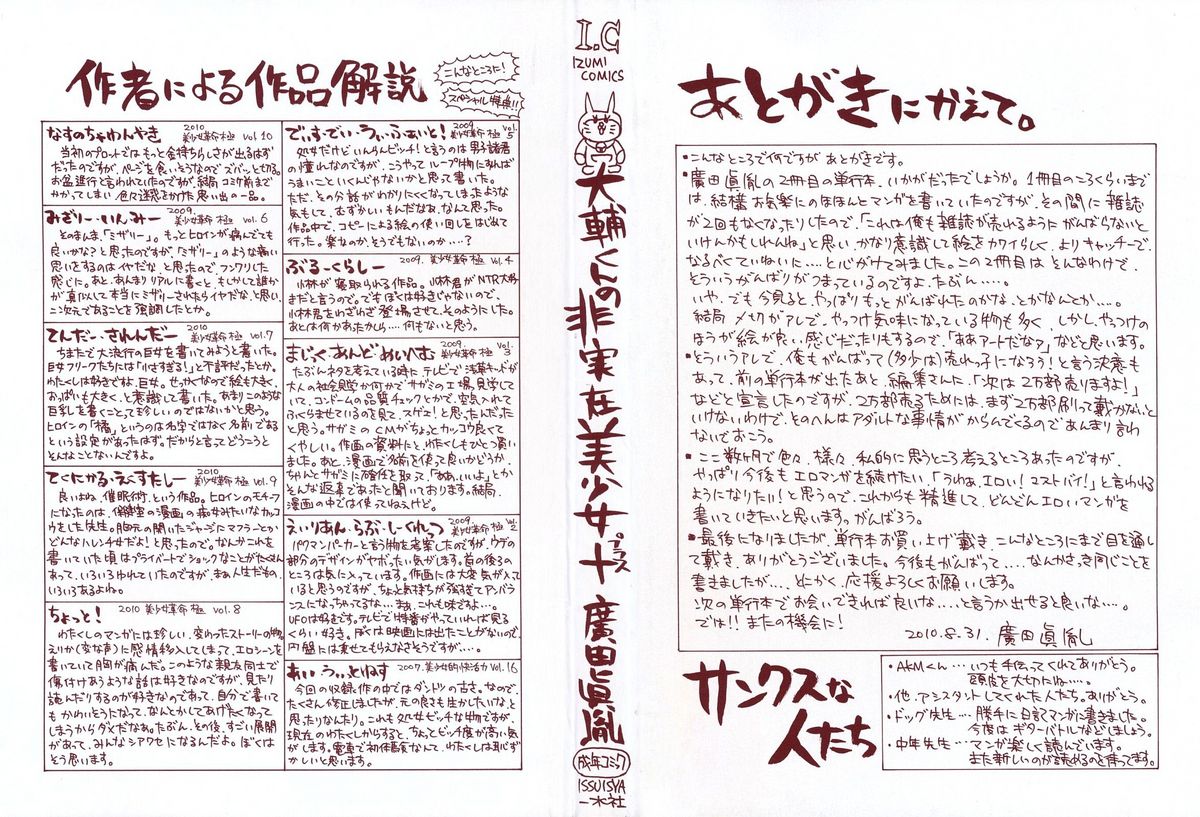 作者による作品解説
こんなところに!
スペシャル特典!!
なすのちゃわんやき
2010
美少女革命 極 Vol.10
当初のプロットではもっと金持ちらしさが出るはず
だったのですが、ページを食いそうなのでズバッと切る。
お盆進行と言われていたのですが、結局コミケ前まで
かかってしまい色々迷惑をかけた思い出の一品。
みざりー・いんみー
2009.
美少女革命 極 vol.6
そのまんま、「ミザリー」。もっとヒロインが病んでても
良いかな?と思ったのですが、「ミザリー」のような痛い
思いをするのはイヤだな、と思ったので、フンワリした
感じに。あと、あんまりリアルに書くと、もしかして誰か
が真似して本当にミザリーされたらイヤだな、と思い、
二次元であることを強調したとか。
てんだー・されんだー
2010
美少女革命 極 vol.7
ちまたで大流行の巨女を書いてみようと書いた。
巨女フリークたちには「小さすぎる!」と不評だったとか。
わたくしは好きですね、巨女。せっかくなので絵も大きく、
おっぱいも大きく、と意識して書いた。あまりこのような
巨乳を書くことって珍しいのではないかと思う。
ヒロインの「橘」というのは名字ではなく名前である
という設定があったはず。だからと言ってどうこうと
そんなことないんですよ。
てくにかる・えくすたしー
2010
美少女革命 極 vol.9
良いよね、催眠術。という作品。ヒロインのモチーフ
になったのは、保健室の漫画の痴女みたいなカッコ
ウをした先生。胸元の開いたジャージにマフラーとか
どんなハレンチ女だよ!と思ったので。なんかこれを
書いていた頃はプライバートでショックなことがたくさん
あって、いろいろゆれていたのですが、まぁ人生だもの、
いろいろあるよね。
ちょっと!
2010 美少女革命 極 vol.8
わたくしのマンガには珍しい、変わったストーリーの物。
えりか(変な声)に感情移入してしまって、エロシーンを
書いていて胸が痛んだ。このような親友同士で
傷付けあうような話は好きなのですが、見たり
読んだりするのが好きなのであって、自分で書いて
もかわいそうになって、なんとかしてあげたくなって
しまうからダメだなぁ。たぶん、その後、すごい展開
があって、みんなシアワセになるんだよ。ぼくは
そう思います。
でいすでい・うぃ・ふぁいと!
2009
美少女革命 極 Vol.5
処女だけどいんらんビッチ!と言うのは男子諸君
の憧れなのですが、こうやってループ物にすれば
うまいこといくんじゃないかと思って書いた。
ただ、その分話がわかりにくくなってしまったような
気もして、むずかしいもんだなぁ、なんて思った。
作品中で、コピーによる絵の使い回しをはじめて
行った。楽なのか、そうでもないのか‥‥?
ぶるー・くらしー
2009. 美少女革命 極 Vol.4
小林が寝取られる作品。小林君がNTR大好
まだと言うので。でもぼくは好きじゃないので、
小林君をわざわざ登場させて、そのようにした。
あとは何かあったかしら‥‥何もないと思う。
まじっく・あんど・めいへむ
2009.
美少女革命 極 Vol.3
たぶんネタを考えている時に、テレビで浅草キッドが
大人の社会見学か何かでサガミの工場見学して
いて、コンドームの品質チェックとかで、空気入れて
ふくらませているのを見て、スゲェ!と思ったんだった
と思う。サガミのCMがちょっとカッコ良くて
くやしい。作画の資料だと、わたくしもひとつ買い
ました。あと、漫画で名前を使って良いかどうか、
ちゃんとサガミに確認を取って、「ああ、いいよ」とか
そんな返事であったと聞いております。結局、
漫画の中では使ってねぇけど。
えいりあん・らぶ・しーくれっつ
2009.
美少女革命 極 Vol.2
パクマンパーカーと言う物を考案したのですが、ウデの
部分のデザインがヤボったい気がします。首の後ろの
ところは気に入っています。作画には大変気が入って
いると思うのですが、ちょっと気持ちが強すぎてアンバラ
ンスになっちゃってるな‥‥まぁ、これも味ですよ‥‥。
UFOは好きです。テレビで特番がやっていれば見る
くらい好き。ぼくは映画には出たことがないので、
円盤には乗せてもらえなさそうですが‥‥。
あい・うぃ・とねす
2007. 美少女的快活力 Vol.16
今回の収録作の中ではダントツの古さ。なので、
たくさん修正しましたが、元の良さも生かしたいな、と
思ったりなんだり。これも処女ビッチな物ですが、
現在のわたくしからすると、ちょっとビッチ度が高い気
がします。電車で初体験なんて、わたくしは恥ずか
しいと思います。
I.C
IZUMI
COMICS
大輔くんの非実在美少女+
プラス
廣田眞胤
成年コミック
ISSUISYA
一水社
あとがきにかえて。
・こんなところで何ですが あとがきです。
・廣田眞胤の2冊目の単行本、いかがだったでしょうか。1冊目のころくらいまで
は、結構お気楽にのほほんとマンガを書いていたのですが、その間に雑誌
が2回もなくなったりしたので、「これは俺も雑誌が売れるようにがんばらないと
いけんかもしれんね」と思い、かなり意識して絵をカワイらしく、よりキャッチーで、
なるべくていねいに‥‥と心がけてみました。この2冊目はそんなわけで、
そういうがんばりがつまっているのですよ、たぶん‥‥。
いや、でも今見ると、やっぱりもっとがんばれたのかな、とかなんとか‥‥。
結局〆切がアレで、やっつけ気味になっている物も多く、しかし、やっつけの
ほうが絵が良い感じだったりもするので、「ああアートだなァ」などと思います。
・とういうアレで、俺もがんばって(多少は)売れっ子になろう!と言う決意も
あって、前の単行本が出たあと、編集さんに、「次は2万部売りますよ!」
などと宣言したのですが、2万部売るためには、まず2万部刷って載かないと
いけないわけで、そのへんはアダルトな事情がからんでくるのであんまり言わ
ないでおこう。
・ここ数ヶ月で色々、様々、私的に思うところ考えるところあったのですが、
やっぱり今後もエロマンガを続けたい、「うわぁ、エロい!マストバイ!」と言われる
ようになりたい!と思うので、これからも精進して、どんどんエロいマンガを
書いていきたいと思いますっ。がんばろう。
・最後になりましたが、単行本お買い上げ戴き、こんなところにまで目を通し
て戴き、ありがとうございました。今後もがんばって‥‥なんかさっき同じことを
書きましたが‥‥とにかく、応援よろしくお願いします。
次の単行本でお会いできれば良いな‥‥と言うか出せると良いな‥‥。
では!!またの機会に!
2010.8.31. 廣田眞胤
サンクスな
人たち
・AKMくん‥‥いつも手伝ってくれてありがとう。
頭皮を大切にね‥‥。
・他、アシスタントしてくれた人たち、ありがとう。
・ドッグ先生‥‥勝手に日記マンガに書きました。
今度はギターバトルなどしましょう。
・中年先生‥‥マンガ楽しく読んでいます。
また新しいのが読めるのを待ってます。